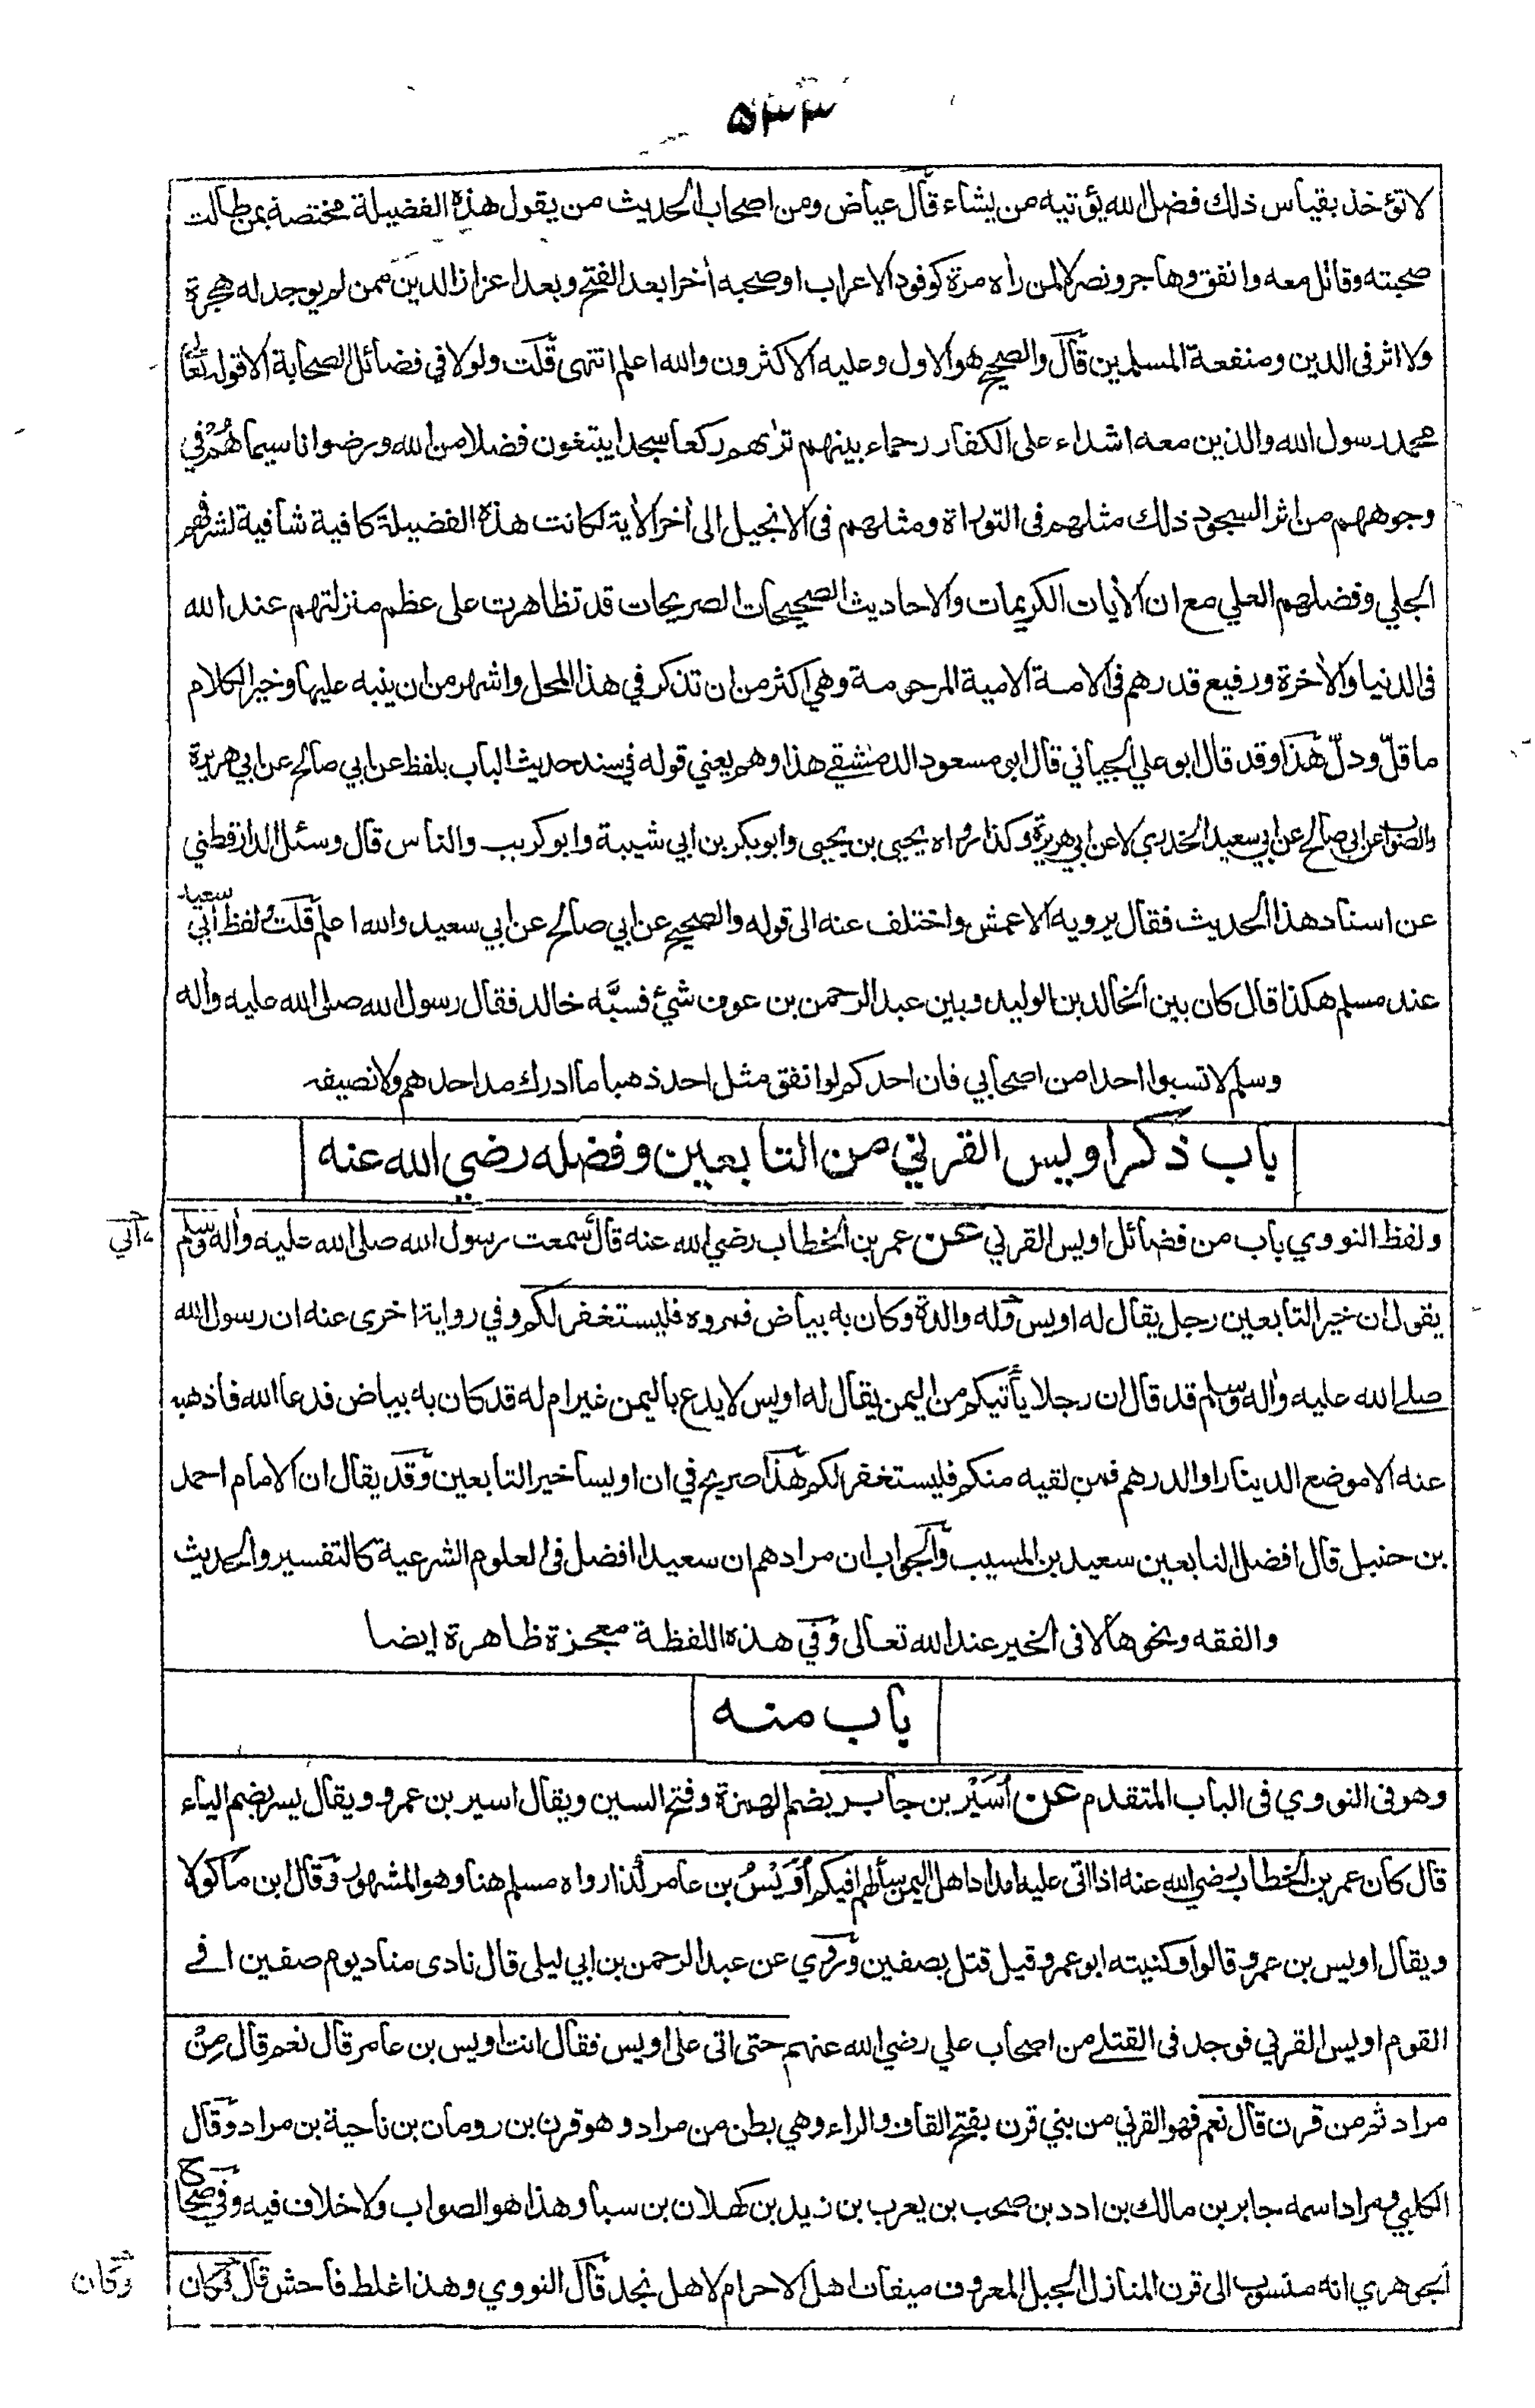 ۵۳۳
لا تؤخذ بقياس ذلك فضل الله يؤتيه من يشاء قال عياض ومن اصحاب الحديث من يقول هذه الفضيلة مختصة بمن طالت
صحبته وقاتل معه وانفق وهاجر ونصر لا لمن راٰه مرة كوفود الاعراب اوصحبه اٰخرا بعد الفتح وبعد اعزاز الدين ممن لم يوجد له هجرة
ولا اثر فى الدين ومنفعة المسلمين قال والصحيح هو الاول وعليه الاكثرون والله اعلم انتهى قلت ولولا في فضائل الصحابة الا قوله تعالى
محمد رسول الله والذين معه اشداء على الكفار رحماء بينهم ترٰىهم ركعا سجدا يبتغون فضلا من الله ورضوانا سيماهُمْ في
وجوههم من اثر السجود ذلك مثلهم فى التوراة ومثلهم فى الانجيل الى اٰخر الاٰية لكانت هذه الفضيلة كافية شافية لشرفهم
الجلي وفضلهم العلي مع ان الاٰيات الكريمات والاحاديث الصحيحات الصريحات قد تظاهرت على عظم منزلتهم عند الله
فى الدنيا والاٰخرة ورفيع قدرهم فى الامة الامية المرحومة وهي اكثر من ان تذكر في هذا المحل واشهر من ان ينبه عليها وخير الكلام
ما قلّ ودلّ هذا وقد قال ابو علي الجياني قال ابى مسعود الدمشقي هذا وهم يعني قوله في سند حديث الباب بلفظ عن ابي صالح عن ابي هريرة
والصواب عن ابى صالح عن ابي سعيد الخدري لا عن ابي هريرة وكذا رواه يحيى بن يحيى وابو بكر بن ابي شيبة وابو كريب والناس قال وسئل الدارقطني
عن اسناد هذا الحديث فقال يرويه الاعمش واختلف عنه الى قوله والصحيح عن ابي صالح عن ابي سعيد والله اعلم قلت ولفظ أبي سعيد
عند مسلم هكذا قال كان بين الخالد بن الوليد وبين عبد الرحمن بن عوف شئ فسبَّه خالد فقال رسول الله صلى الله عليه واٰله
وسلم لا تسبوا احدا من اصحابي فان احدكم لو انفق مثل احد ذهبا ما ادرك مد احدهم ولا نصيفه
باب ذكر اويس القرني من التابعين وفضله رضي الله عنه
ولفظ النووي باب من فضائل اويس القرني عن عمر بن الخطاب رضي الله عنه قال سمعت رسول الله صلى الله عليه واٰله وسلم
يقول ان خير التابعين رجل يقال له اويس وله والدة وكان به بياض فمروه فليستغفر لكم وفي رواية اخرى عنه ان رسول الله
صلى الله عليه واٰله وسلم قد قال ان رجلا يأتيكم من اليمن يقال له اويس لا يدع باليمن غير ام له قد كان به بياض فدعا الله فاذهبه
عنه الا موضع الدينار او الدرهم فمن لقيه منكم فليستغفر لكم هذا صريح في ان اويسا خير التابعين وقد يقال ان الامام احمد
بن حنبل قال افضل التابعين سعيد بن المسيب والجواب ان مرادهم ان سعيدا افضل فى العلوم الشرعية كالتفسير والحديث
والفقه ونحوها لا فى الخير عند الله تعالى وفي هذه اللفظة معجزة ظاهرة ايضا
باب منه
وهو فى النووي فى الباب المتقدم عن أُسَيْر بن جابر بضم الهمزة وفتح السين ويقال اسير بن عمرو ويقال يسر بضم الياء
قال كان عمر بن الخطاب رضي الله عنه اذا اتى عليه امداد اهل اليمن سألهم افيكم أُوَيْسُ بن عامر كذا رواه مسلم هنا وهو المشهور وقال ابن ماكولا
ويقال اويس بن عمرو قالوا وكنيته ابو عمرو قيل قتل بصفين وروي عن عبد الرحمن بن ابي ليلى قال نادى مناد يوم صفين افي
القوم اويس القرني فوجد فى القتلى من اصحاب علي رضي الله عنهم حتى اتى على اويس فقال انت اويس بن عامر قال نعم قال مِنْ
مراد ثم من قرن قال نعم فهو القرني من بني قرن بفتح القاف والراء وهي بطن من مراد وهو قرن بن رومان بن ناحية بن مراد وقال
الكلبي ومراد اسمه جابر بن مالك بن ادد بن صحب بن يعرب بن زيد بن كهلان بن سبا وهذا هو الصواب ولا خلاف فيه وفي صحاح
الجوهري انه منسوب الى قرن المنازل الجبل المعروف ميقات اهل الاحرام لاهل نجد قال النووي وهذا غلط فاحش قال فكان
وكان